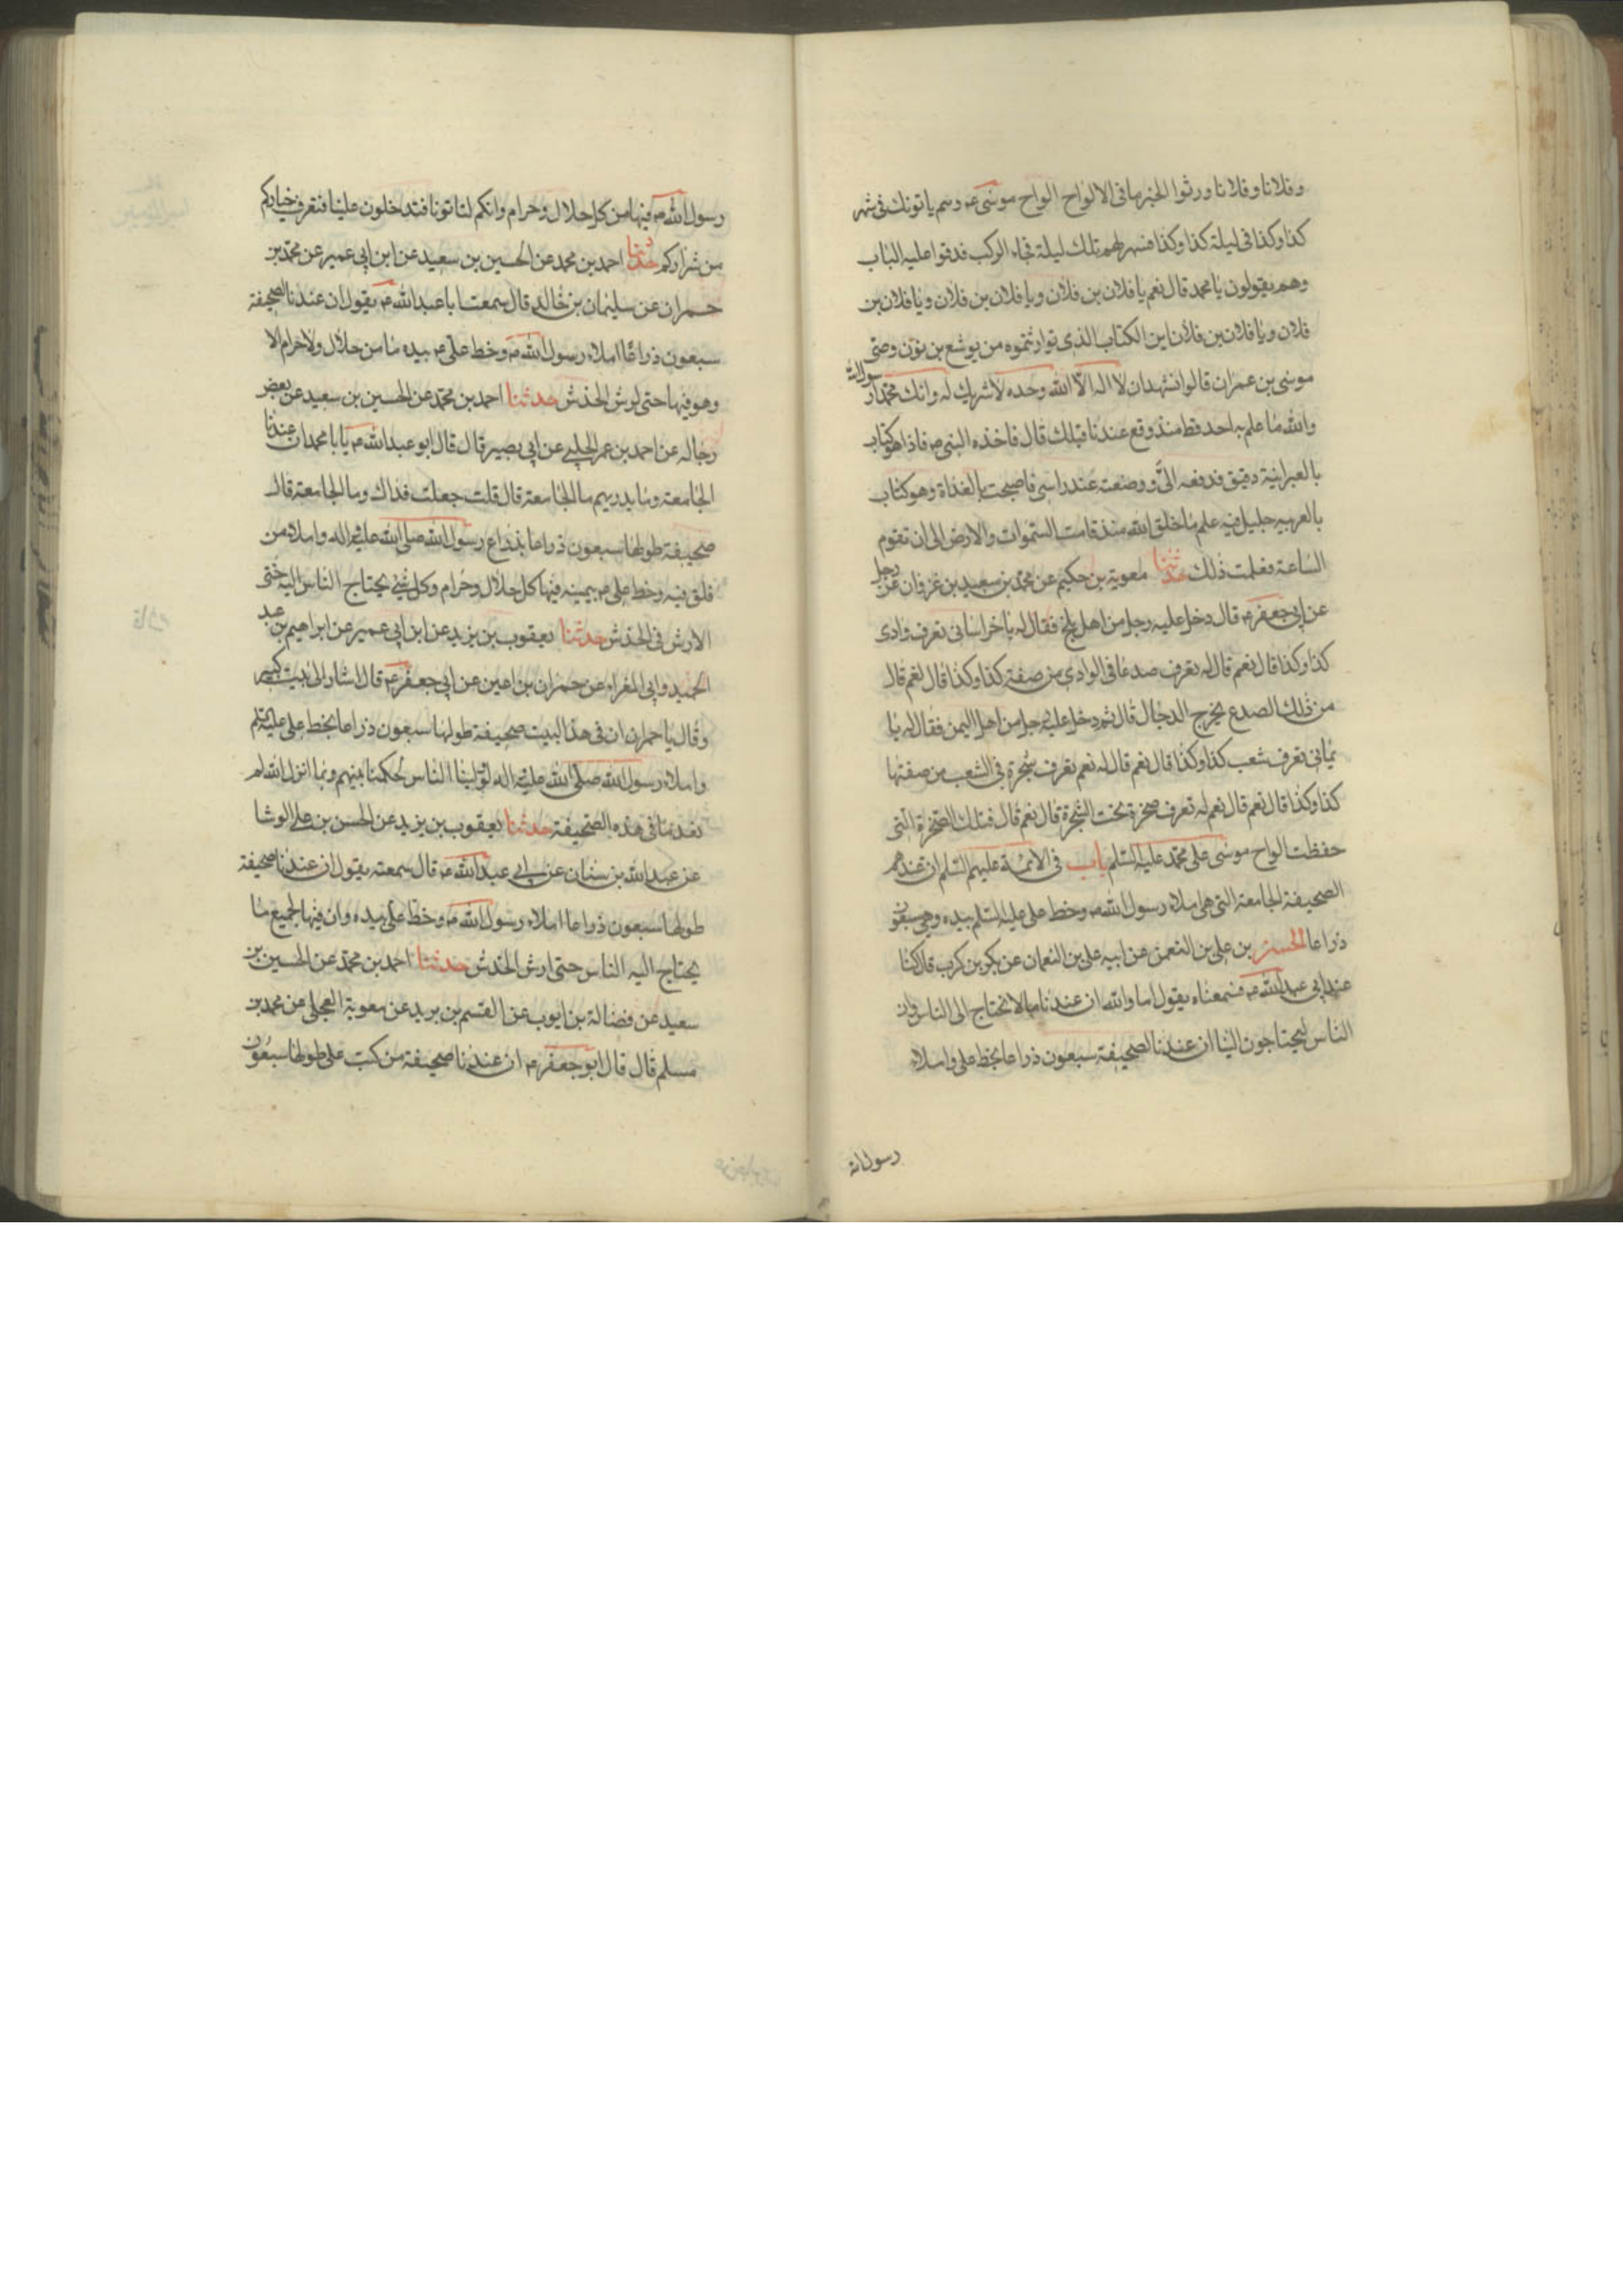 وفلانا وفلانا ورثوا الخبر بها فى الالواح الواح موسى ع وسم ياتونك فى شهر
كذا وكذا فى ليلة كذا وكذا فسهر لهم تلك ليلة فجاء الركب فدقوا عليه الباب
وهم يقولون يا محمد قال نعم يا فلان بن فلان ويا فلان بن فلان ويا فلان بن
فلان ويا فلان بن فلان اين الكتاب الذى توارثتموه من يوشع بن نون وصى
موسى بن عمران قالوا نشهد ان لا اله الا الله وحده لا شريك له وانك محمدا رسول الله
والله ما علم به احد قط منذ وقع عندنا قبلك قال فاخذه النبى ص فاذا هو كتاب
بالعبرانية دقيق فدفعه الىّ ووضعته عند راسى فاصبحت بالغداة وهو كتاب
بالعربيه جليل فيه علم ما خلق الله منذ قامت السموات والارض الى ان تقوم
الساعة فعلمت ذلك حدثنا معوية بن حكيم عن محمد بن سعيد بن غزوان عن رجل
عن ابى جعفر ع قال دخل عليه رجل من اهل بلخ فقال له يا خراسانى تعرف وادى
كذا وكذا قال نعم قال له تعرف صدعا فى الوادى من صفته كذا وكذا قال نعم قال
من ذلك الصدع يخرج الدجال قال ثم دخل عليه رجل من اهل اليمن فقال له يا
يمانى تعرف شعب كذا وكذا قال نعم قال له نعم تعرف شجرة فى الشعب من صفتها
كذا وكذا قال نعم قال نعم له تعرف صخرة تحت الشجرة قال نعم قال فتلك الصخرة التى
حفظت الواح موسى على محمد عليه السلم باب فى الائمة عليهم السلم ان عندهم
الصحيفة الجامعة التى هى املاء رسول الله ص وخط على عليه السلم بيده وهى سبعون
ذراعا الحسن بن على بن النعمن عن ابيه على بن النعمان عن بكر بن كرب قال كنا
عند ابى عبد الله ع فسمعناه يقول اما والله ان عندنا ما لا نحتاج الى الناس وان
الناس ليحتاجون الينا ان عندنا الصحيفة سبعون ذراعا بخط على واملاء
رسول الله
رسول الله ص فيها من كل حلال وحرام وانكم لتاتونا فتدخلون علينا فنعرف خياركم
من شراركم حدثنا احمد بن محمد عن الحسين بن سعيد عن ابن ابى عمير عن محمد بن
حمران عن سليمان بن خالد قال سمعت ابا عبد الله ع يقول ان عندنا الصحيفة
سبعون ذراعا املاء رسول الله ص وخط على ع بيده ما من حلال ولا حرام الا
وهو فيها حتى ارش الخدش حدثنا احمد بن محمد عن الحسين بن سعيد عن بعض
رجاله عن احمد بن عمر الحلبى عن ابى بصير قال قال ابو عبد الله ع يا با محمد ان عندنا
الجامعة وما يدريهم ما الجامعة قال قلت جعلت فداك وما الجامعة قال
صحيفة طولها سبعون ذراعا بذراع رسول الله صلى الله عليه واله واملاه من
فلق فيه وخط على ع بيمينه فيها كل حلال وحرام وكل شئ يحتاج الناس اليه حتى
الارش فى الخدش حدثنا يعقوب بن يزيد عن ابن ابى عمير عن ابراهيم بن عبد
الحميد وابى المغراء عن حمران بن اعين عن ابى جعفر ع قال اشار الى بيت كبير
وقال يا حمران ان فى هذا البيت صحيفة طولها سبعون ذراعا بخط على عليه السلم
واملاء رسول الله صلى الله عليه واله لو ولينا الناس لحكمنا بينهم وبما انزل الله لم
نعد ما فى هذه الصحيفة حدثنا يعقوب بن يزيد عن الحسن بن على الوشا
عن عبد الله بن سنان عن ابى عبد الله ع قال سمعته يقول ان عندنا صحيفة
طولها سبعون ذراعا املاء رسول الله ص وخط على بيده وان فيها لجميع ما
يحتاج اليه الناس حتى ارش الخدش حدثنا احمد بن محمد عن الحسين بن
سعيد عن فضالة بن ايوب عن القسم بن بريد عن معوية العجلى عن محمد بن
مسلم قال قال ابو جعفر ع ان عندنا صحيفة من كتب على طولها سبعون